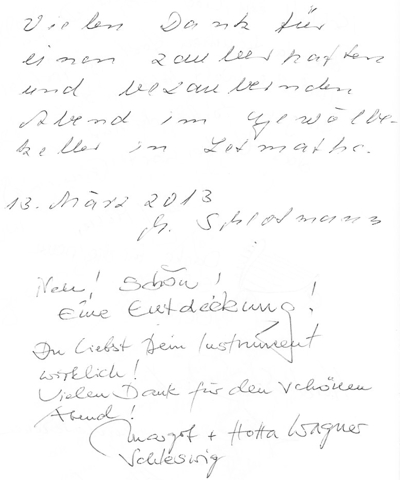 Vielen Dank für
einen zauberhaften
und bezaubernden
Abend im Gewölbe-
keller in Letmathe.
13. März 2013
Schön!
Eine Entdeckung!
Du liebst Dein Instrument
wirklich!
Vielen Dank für den schönen
Abend!
Margot + Wagner
Schleswig